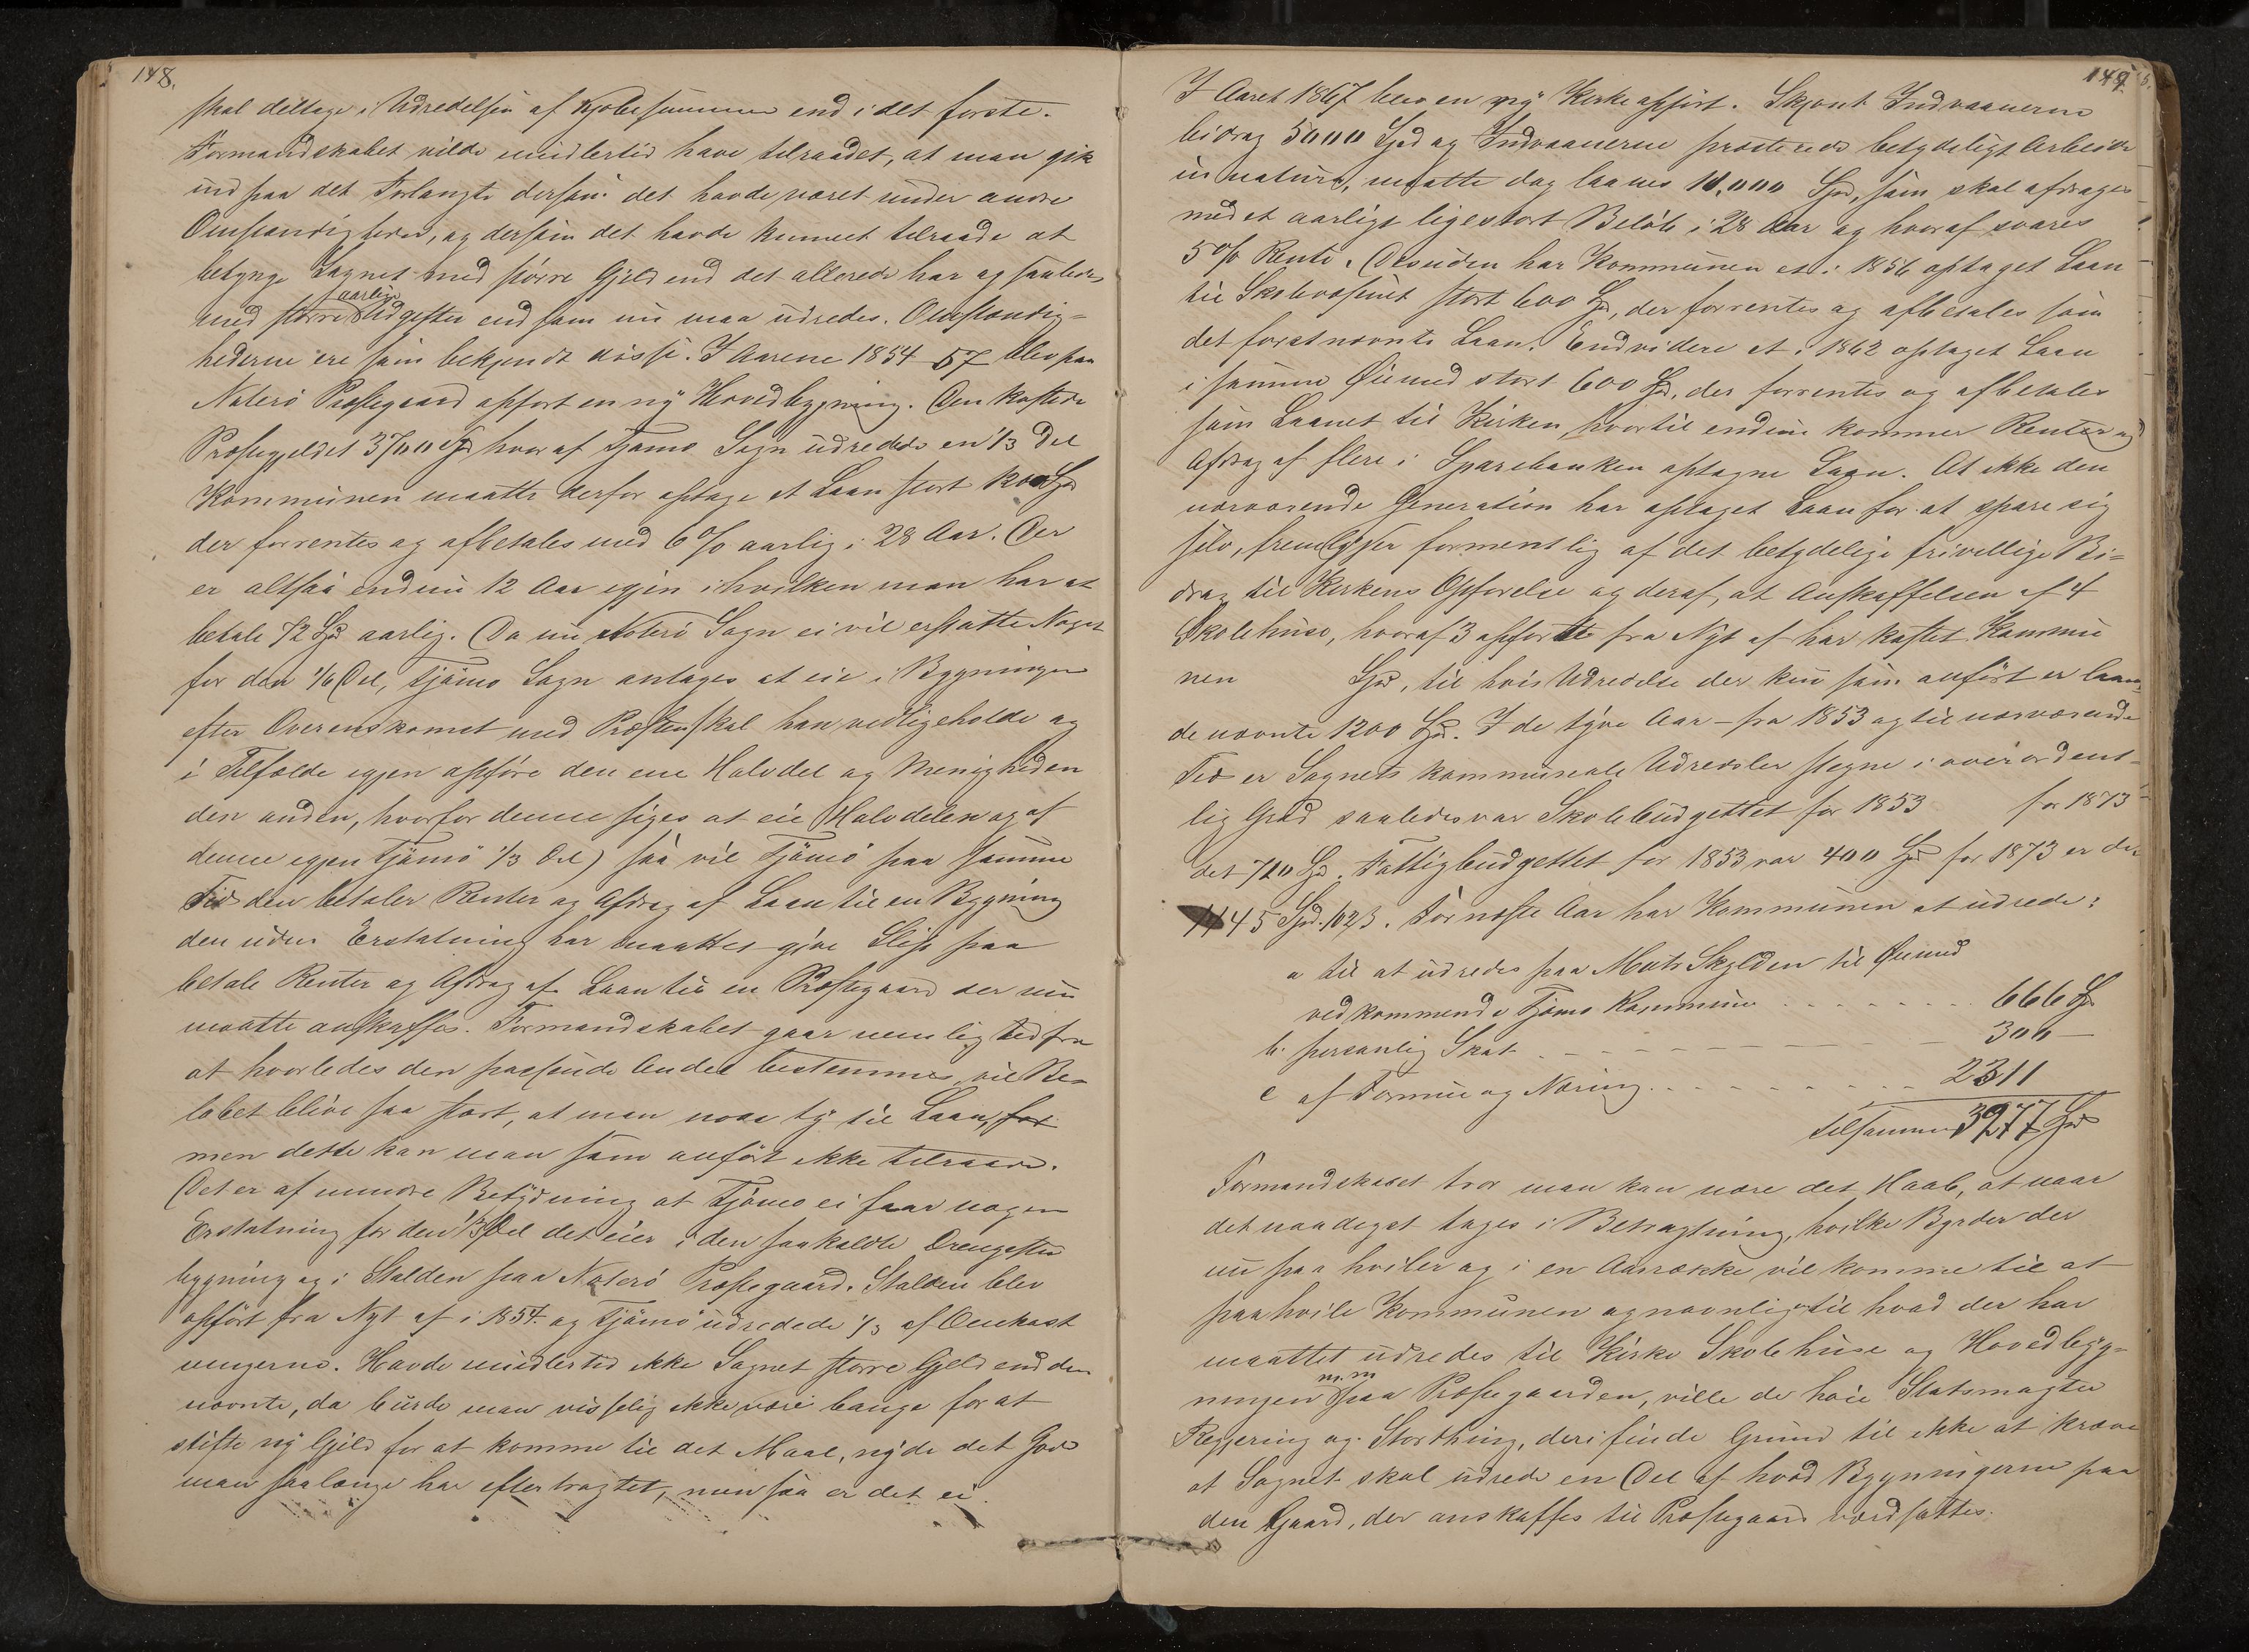 148.
skal deltage i Udredelsen af Kjøbesummen end i det første.
Formandskabet vilde imidlertid have tilraadet, at man gik
ind paa det Forlangte dersom det havde været under andre
Omstændigheder, og dersom det havde kunnet tilraade at
betynge Sognet med større Gjeld end det allerede har og saaledes
med større aarlige Udgifter end som nu maa udredes. Omstændig-
hederne ere som bekjendt disse. I Aarene 1854-57 blev paa
Nøterø Præstegaard opført en ny Hovedbygning. Den kostede
Præstegjeldet 3700 Spd hvoraf Tjømø Sogn udredede en 1/3 Del
Kommunen maatte derfor optage et Laan stort 1200 Spd
der forrentes og afbetales med 6% aarlig i 28 Aar. Der
er altsaa endnu 12 Aar igjen i hvilken man har at
betale 72 Spd aarlig. Da nu Nøterø Sogn ei vil erstatte Noget
for den 1/6 Del, Tjømø Sogn antages at eie i Bygningen
efter Overenskomst med Præsten skal han vedligeholde og
i Tilfælde igjen opføre den ene Halvdel og Menigheden
den anden, hvorfor denne siges at eie Halvdelen og af
denne igjen Tjømø 1/3 Del) saa vil Tjømø paa samme
Tid den betaler Renter og Afdrag af Laan til en Bygning
den uden Erstatning har maattet give Slip paa
betale Renter og Afdrag af Laan til en Præstegaard der nu
maatte anskaffes. Formandskabet gaar nemlig ud fra
at hvorledes den passende Andel bestemmes, vil Be-
løbet blive saa stort, at man maa ty til Laan, for
men dette kan man som anført ikke tilraade.
Det er af mindre Betydning at Tjømø ei faar nogen
Erstatning for den 1/3 Del det eier i den saakaldte Drengestue
bygning og i Stalden paa Nøterø Præstegaard. Stalden blev
opført fra Nyt af i 1854 og Tjømø udredede 1/3 af Omkost
ningerne. Havde imidlertid ikke Sognet større Gjeld end den
nævnte, da burde man visselig ikke være bange for at
stifte ny Gjeld for at komme til det Maal, nyde det Gode
man saalænge har eftertragtet, men saa er det ei.
149
I Aaret 1867 blev en ny Kirke opført. Skjønt Indvaanerne
bidrog 5000 Spd og Indvaanerne præsterede betydeligt Arbeide
in natura, maatte dog laanes 10,000 Spd, som skal afdrages
med et aarligt ligestort Beløb i 28 Aar og hvoraf svares
5% Rente. Desuden har Kommunen et i 1856 optaget Laan
til Skolevæsenet stort 600 Spd, der forrentes og afbetales som
det førstnævnte Laan. Endvidere et i 1862 optaget Laan
i samme Øiemed stort 600 Spd, der forrentes og afbetales
som Laanet til Kirken, hvortil endnu kommer Renter og
Afdrag af flere i Sparebanken optagne Laan. At ikke den
nærværende Generation har optaget Laan for at spare sig
selv, fremlyser formentlig af det betydelige frivillige Bi-
drag til Kirkens Opførelse og deraf, at Anskaffelsen af 4
Skolehuse, hvoraf 3 opførte fra Nyt af har kostet Kommu
nen Spd, til hvis Udredelse der kun som anført er laant
de nævnte 1200 Spd. I de tyve Aar - fra 1853 og til nærværende
Tid er Sognets kommunale Udredsler stegne i overordent-
lig Grad saaledes var Skolebudgettet for 1853 for 1873
det 710 Spd. Fattigbudgettet for 1853 var 400 Spd for 1873 er det
1145 Spd. 1023. For næste Aar har Kommunen at udrede:
a til at udredes paa Matr Skylden til Øiemed
vedkommende Tjømø Kommune 666 Spd
b. personlig Skat 300 -
c af Formue og Næring 2311
tilsammen 3277 Spd
Formandskabet tror man kan nære det Haab, at naar
det naadigst tages i Betragtning, hvilke Byrder der
nu paahviler og i en Aarrække vil komme til at
paahvile Kommunen og navnlig til hvad der har
maattet udredes til Kirke Skolehuse og Hovedbyg-
ningen m. m paa Præstegaarden, ville de høie Statsmagter
Regjering og Storthing, deri finde Grund til ikke at kræve
at Sognet skal udrede en Del af hvad Bygningerne paa
den Gaard, der anskaffes til Præstegaard værdsættes.